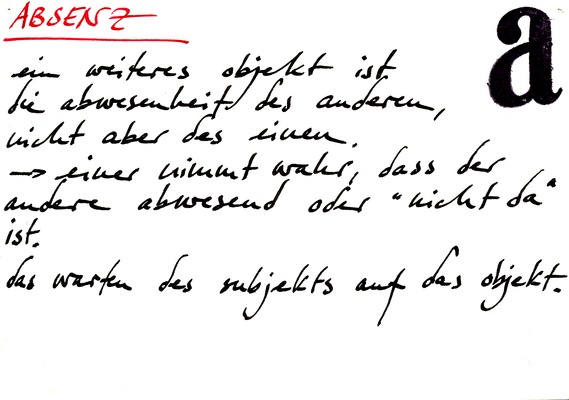 ABSENZ
a
ein weiteres objekt ist
die abwesenheit des anderen,
nicht aber des einen.
→ einer nimmt wahr, dass der
andere abwesend oder "nicht da"
ist.
das warten des subjekts auf das objekt.